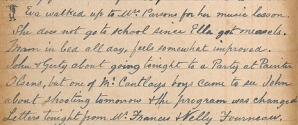 Eva walked up to Mrs Parsons for her music lesson.
She does not go to school since Ella got measels.
Mam in bed all day, feels somewhat improved.
John & Gerty about going tonight to a Party at Painter
Olsens, but one of Mr Cantlays boys came to see John
about shooting tomorrow & the program was changed
Letters tonight from Mr Frances & Nelly Fourneaux.